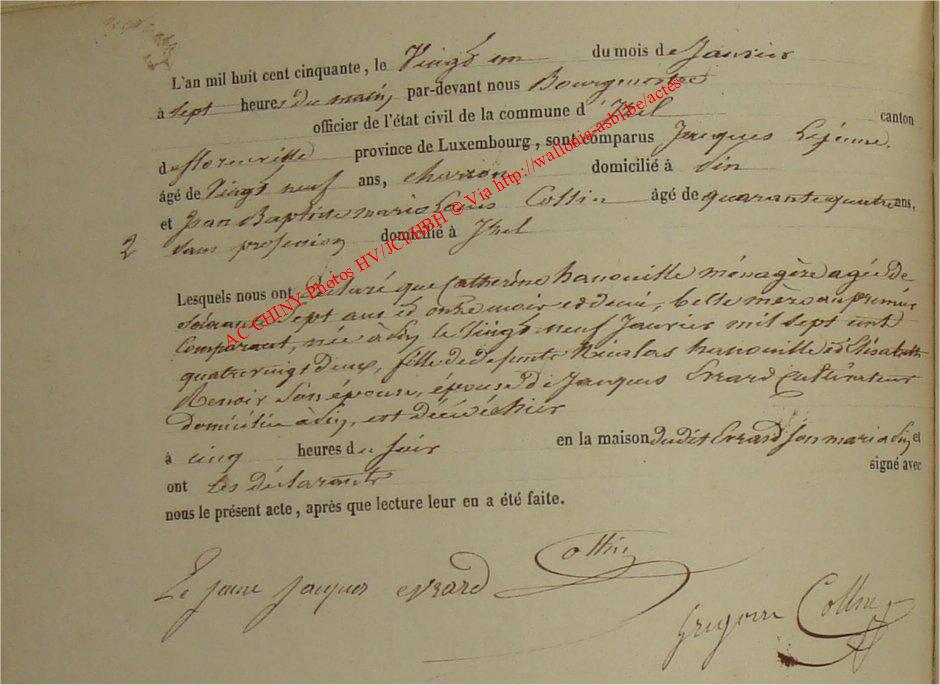 L'an mil huit cent cinquante, le Vingt un du mois de Janvier
à sept heures du matin, par-devant nous Bourgmestre
officier de l'état civil de la commune d'Izel canton
de florenville province de Luxembourg, sont comparus Jacques Lejeune,
âgé de Vingt neuf ans, charron domicilié à Pin
et Jean Baptiste marie Louis Collin âgé de quarante quatre ans,
2 sans profession domicilié à Izel
Lesquels nous ont déclaré que Catherine hanouille ménagère agée de
Soixante Sept ans et onze mois et demi, belle mère au premier
Comparant, née à Pin le Vingt neuf Janvier mil sept cent
quatrevingt deux, fille de defunts Nicolas hanouille et Elisabeth
Renoir Son épouse, épouse de Jacques Evrard Cultivateur
domicilié à Pin, est décédée hier
à cinq heures du soir en la maison dudit Evrard son mari à Pin et
ont les déclarants signé avec
nous le présent acte, après que lecture leur en a été faite.
Le jeune jacques evrard Collin
Grégoire Collin
AC CHINY-Photos HV/JCM/BH © Via http://wallonia-asbl.be/actes